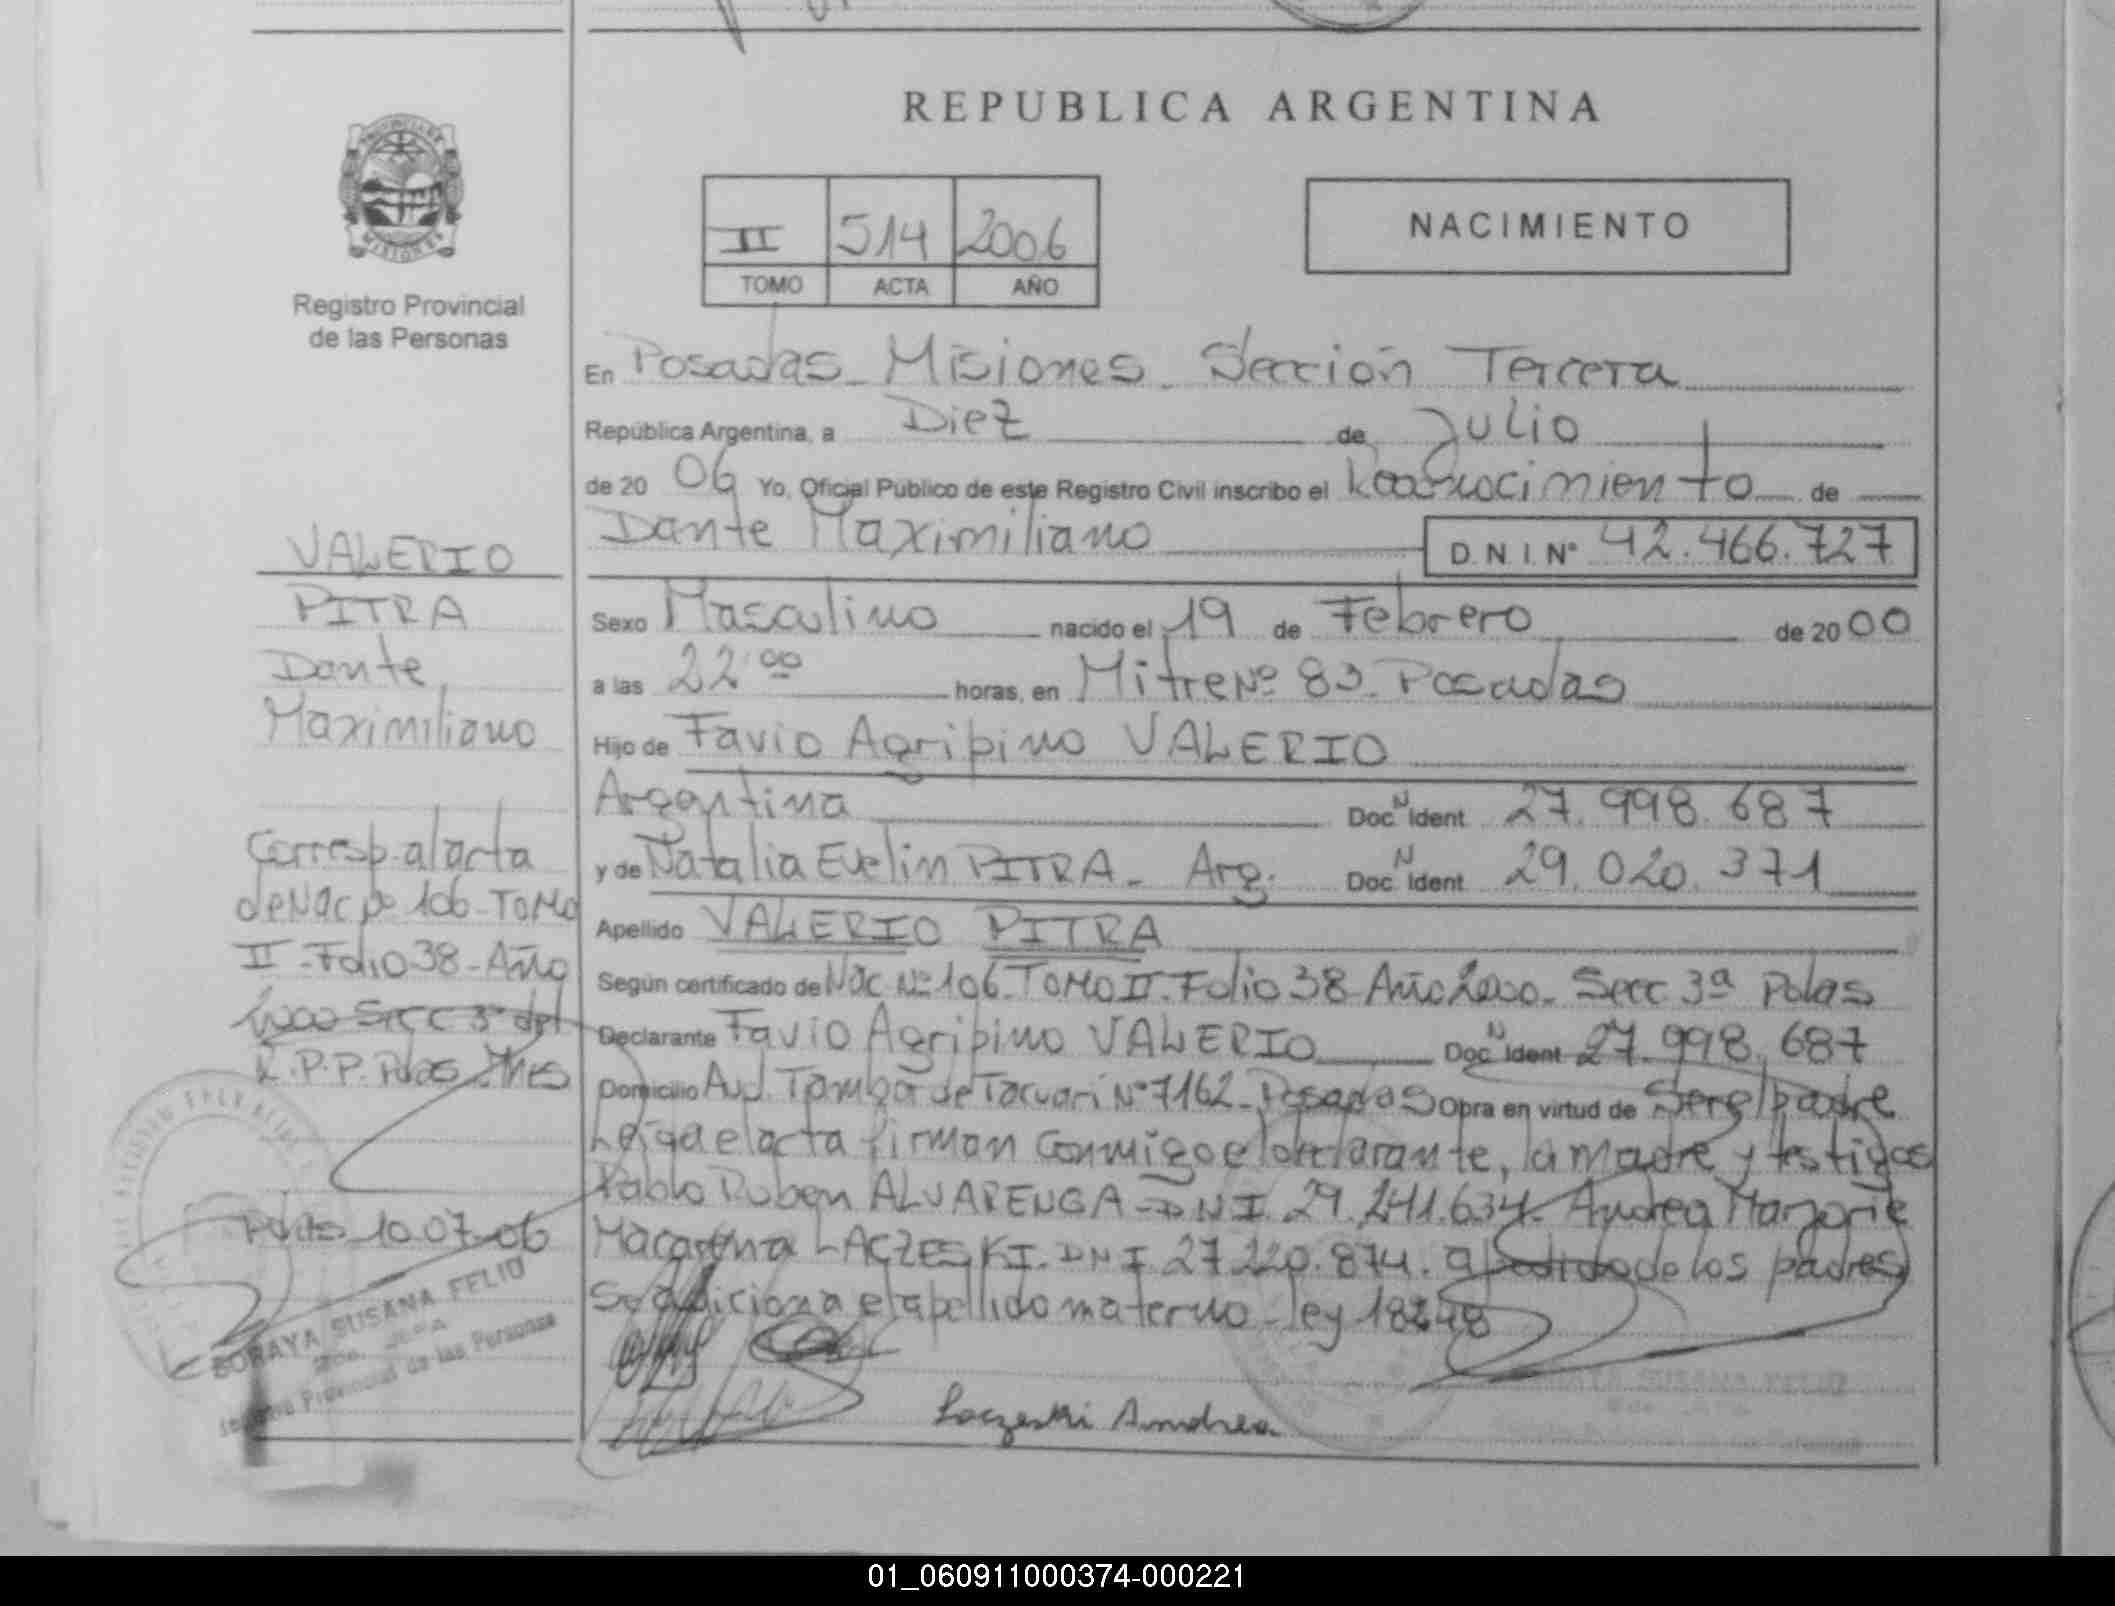 REPUBLICA ARGENTINA
NACIMIENTO
II 514 2006
TOMO ACTA AÑO
Registro Provincial
de las Personas
En Posadas - Misiones - Sección Tercera
República Argentina, a Diez de Julio
de 20 06 Yo, Oficial Público de este Registro Civil inscribo el de
Dante Maximiliano D.N.I. Nº 42.466.727
Sexo Masculino nacido el 19 de Febrero de 20 00
a las 22 00 horas, en Mitre Nº 83 - Posadas
Hijo de Favio Agripino VALERIO
Argentina Doc N Ident 27.998.687
y de Natalia Evelin PITRA - Arg. Doc N Ident 29.020.371
Apellido VALERIO PITRA
Según certificado de Nac. Nº 106 - TOMO II - Folio 38 - Año 2000 - Secc 3ª Pdas
Declarante Favio Agripino VALERIO Doc N Ident 27.998.687
Domicilio Avd. Tambor de Tacuari Nº 7162 - Posadas Obra en virtud de Ser el padre
Leida el acta firman conmigo el declarante, la madre y testigos
Pablo Ruben ALVARENGA - DNI. 29.241.634. Andrea Marjorie
Macarena LACZESKI. DNI 27.220.874. a pedido de los padres
Se adiciona el apellido materno - ley 18248
Laczeski Andrea
VALERIO
PITRA
Dante
Maximiliano
Corresp. al acta
de Nac Nº 106 - TOMO
II - Folio 38 - Año
2000 Secc 3ª del
R.P.P. Pdas Mnes
Pdas 10.07.06
SORAYA SUSANA FELIO
Provincial de las Personas
01_060911000374-000221